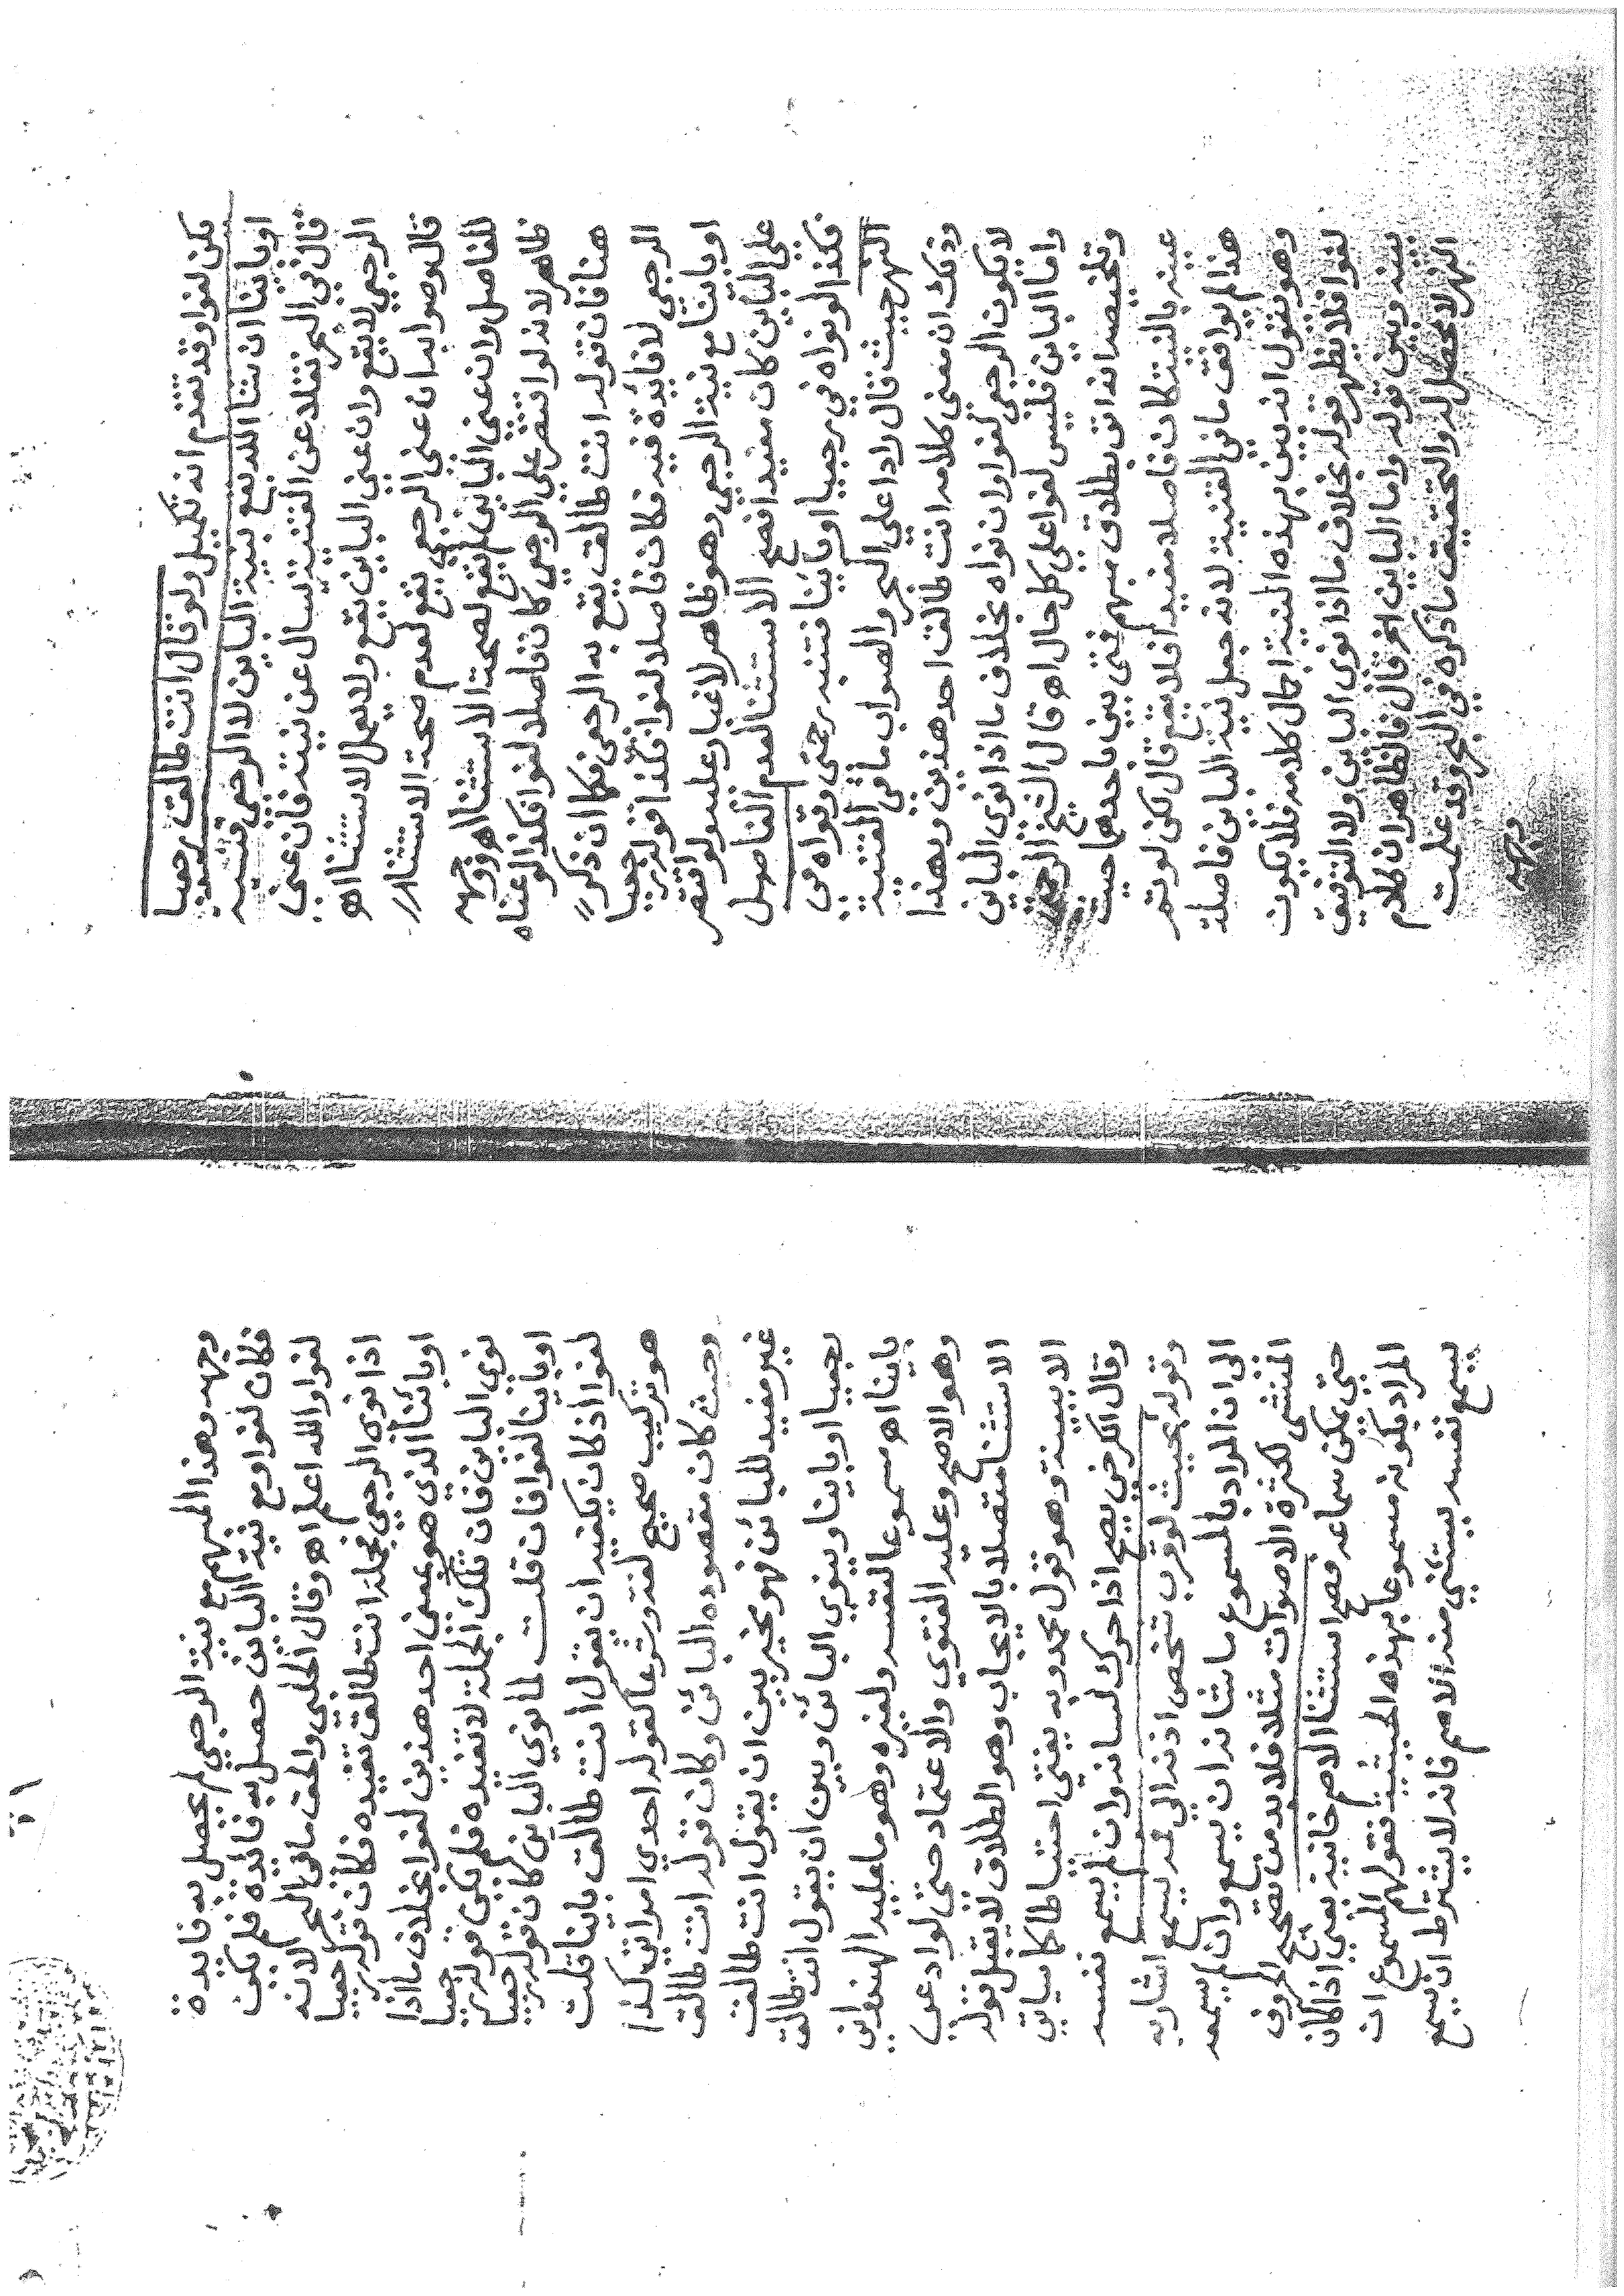 يكن لغوا وقد تقدم انه تكميل ولو قال انت طالق رجعيا
او باينا ان شا الله يقع بنية الباين لا الرجعي قنيه
قال في البحر نقلا عن القنية يسال عن نيته فان عنى
الرجعي لا يقع وان عنى الباين يقع ولا يعمل الاستثنا اهـ
قال وصوابه ان عنى الرجعي يقع لعدم صحة الاستثنا
للفاصل وان عنى الباين لم يقع لصحة الاستثنا اهـ ووجهه
ظاهر لانه لو اقتصر على الرجعي كان فاصلا لغوا فكذا لو عناه
هنا فان قوله انت طالق يقع به الرجعي فكما ان ذكر
الرجعي لا فايدة فيه فكان فاصلا لغوا فكذا قوله رجعيا
او باينا مع نية الرجعي وهو ظاهر لا غبار عليه ولو اقتصر
على الباين كان مفيدا فصح الاستثنا لعدم الفاصل
فكذا لو نواه في رجعيا او باينا فتنبه رحمتي وقواه في
النهر حيث قال رادا على البحر والصواب ما في القنية
وذلك ان معنى كلامه انت طالق احد هذين وبهذا
لا يكون الرجعي لغوا وان نواه بخلاف ما اذا نوى الباين
واما الباين فليس لغوا على كل حال اهـ قال الشيخ الرحمتي
وتلخيصه انه اتى بطلاق مبهم فتى بين باحدهما حيث
عينه بالنية كان فاصلا مفيدا فلا يقع قال لكن لو تم
هذا لم يوافق ما في القنية لانه جعل نية الباين فاصلة
وهو نقول انه تبين بهذه النية اجمال كلامه فلا يكون
لغوا فلا يظهر قوله بخلاف ما اذا نوى الباين ولا التوفيق
بينه وبين قوله واما الباين الخ قال فالظاهر ان كلام
النهر لا محصل له والتحقيق ما ذكره في البحر وقد علمت
وجهه
وجهه وهذا المبهم مع نية الرجعي لم يحصل به فايدة
فكان لغوا ومع نية الباين حصل به فائدة فلم يكن
لغوا والله اعلم اهـ وقال الحلبي والحق ما في البحر لانه
اذا نوى الرجعي فجملة انت طالق تفيده فكان قوله رجعيا
او بائنا الذي هو بمعنى احد هذين لغوا بخلاف ما اذا
نوى الباين فان تلك الجملة لا تفيده فلم يكن قوله رجعيا
او باينا لغوا فان قلت لما نوي الباين كان قوله رجعيا
لغوا اذ كان يكفيه ان يقول انت طالق باينا قلت
هو تركيب صحيح لغة وشرعا كقوله احدي امراتي كذا
وحيث كان مقصوده البائن وكان قوله انت طالق
غير مفيد للبائن فهو مخير بين ان يقول انت طالق
رجعيا او باينا وينوي البائن وبين ان يقول انت طالق
باينا اهـ مسموعا لنفسه ولغيره وهو ما عليه الهندواني
وهو الاصح وعليه الفتوي والاعتماد حتى لو ادعى
الاستثنا متصلا بالايجاب وهو الطلاق لا يقبل قوله
الا ببينة وهو قول محمد وبه يفتي احتياطا كما سياتي
وقال الكرخي يصح اذا حرك لسانه وان لم يسمع نفسه
وقوله بحيث لو قرب شخص اذنه الى فمه يسمع اشار به
الى ان المراد بالمسموع ما شانه ان يسمع وان لم يسمعه
المنشي لكثرة الاصوات مثلا فلا بد من تصحيح الحروف
حتى يمكن سماعه فصح استثنا الاصم خانية يعني اذا كان
المراد بكونه مسموعا بهذه الحيثية فقولهم المسموع ان
يسمع نفسه يستثني منه الاصم فانه لا يشترط ان يسمع